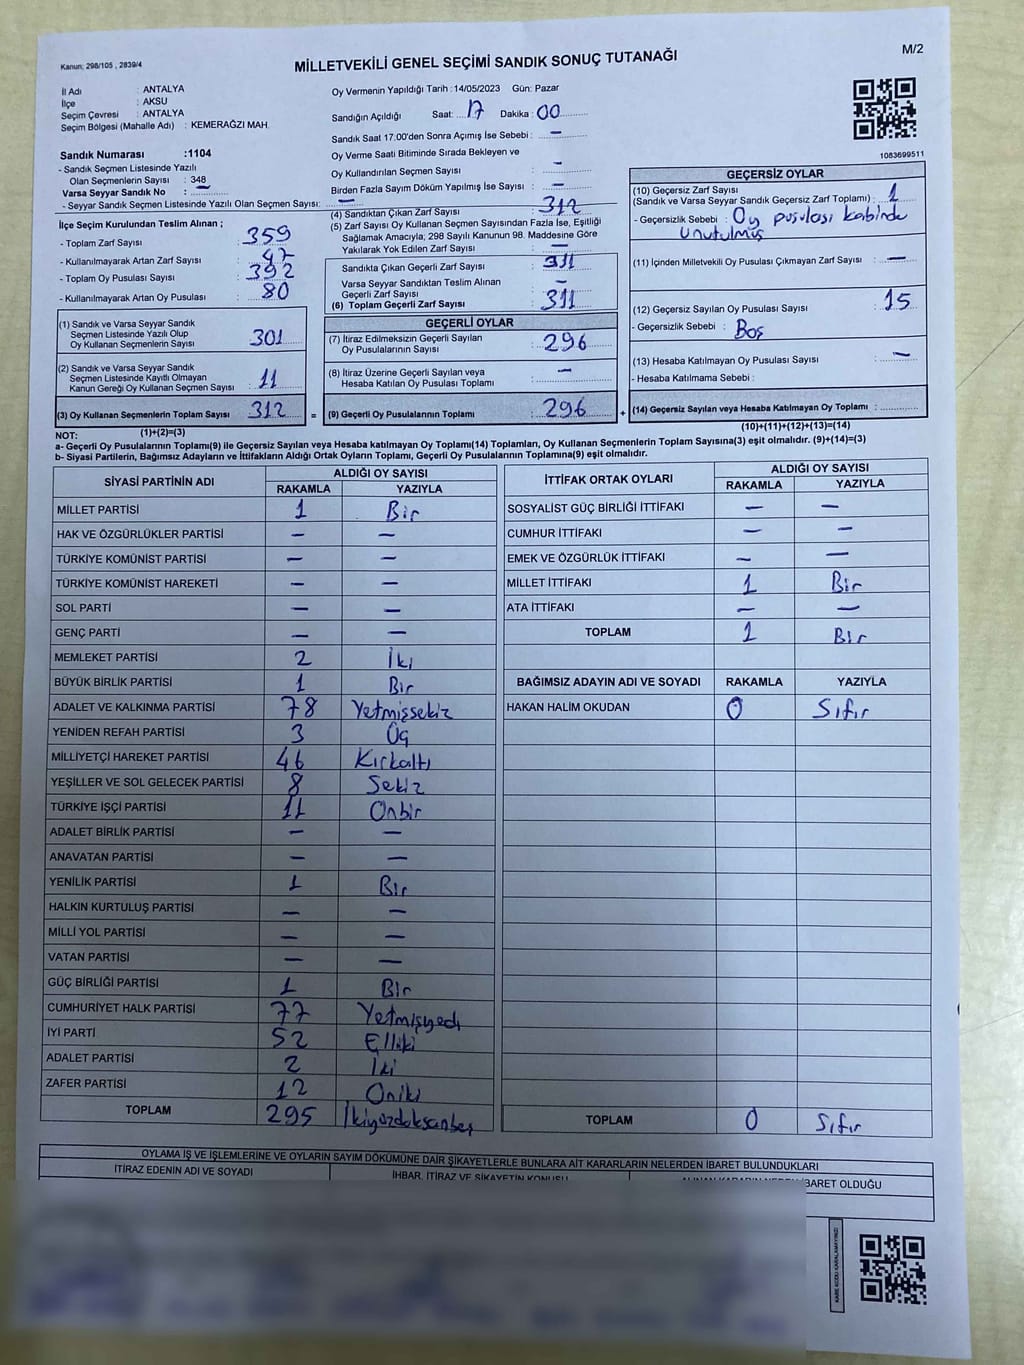 Kanun; 298/105 , 2839/4
MİLLETVEKİLİ GENEL SEÇİMİ SANDIK SONUÇ TUTANAĞI
M/2
İl Adı : ANTALYA
İlçe : AKSU
Seçim Çevresi : ANTALYA
Seçim Bölgesi (Mahalle Adı) : KEMERAĞZI MAH.
Sandık Numarası :1104
- Sandık Seçmen Listesinde Yazılı
Olan Seçmenlerin Sayısı : 348
Varsa Seyyar Sandık No : —
- Seyyar Sandık Seçmen Listesinde Yazılı Olan Seçmen Sayısı: —
Oy Vermenin Yapıldığı Tarih :14/05/2023 Gün: Pazar
Sandığın Açıldığı Saat: 17 Dakika : 00
Sandık Saat 17:00'den Sonra Açımış İse Sebebi : —
Oy Verme Saati Bitiminde Sırada Bekleyen ve
Oy Kullandırılan Seçmen Sayısı : —
Birden Fazla Sayım Döküm Yapılmış İse Sayısı : —
1083699511
İlçe Seçim Kurulundan Teslim Alınan ;
- Toplam Zarf Sayısı : 359
- Kullanılmayarak Artan Zarf Sayısı : 47
- Toplam Oy Pusulası Sayısı : 392
- Kullanılmayarak Artan Oy Pusulası : 80
(1) Sandık ve Varsa Seyyar Sandık
Seçmen Listesinde Yazılı Olup
Oy Kullanan Seçmenlerin Sayısı : 301
(2) Sandık ve Varsa Seyyar Sandık
Seçmen Listesinde Kayıtlı Olmayan
Kanun Gereği Oy Kullanan Seçmen Sayısı : 11
(3) Oy Kullanan Seçmenlerin Toplam Sayısı : 312 =
(1)+(2)=(3)
(4) Sandıktan Çıkan Zarf Sayısı : 312
(5) Zarf Sayısı Oy Kullanan Seçmen Sayısından Fazla İse, Eşitliği
Sağlamak Amacıyla; 298 Sayılı Kanunun 98. Maddesine Göre
Yakılarak Yok Edilen Zarf Sayısı : —
Sandıkta Çıkan Geçerli Zarf Sayısı : 311
Varsa Seyyar Sandıktan Teslim Alınan
Geçerli Zarf Sayısı : —
(6) Toplam Geçerli Zarf Sayısı : 311
GEÇERLİ OYLAR
(7) İtiraz Edilmeksizin Geçerli Sayılan
Oy Pusulalarının Sayısı : 296
(8) İtiraz Üzerine Geçerli Sayılan veya
Hesaba Katılan Oy Pusulası Toplamı : —
(9) Geçerli Oy Pusulalarının Toplamı : 296 +
GEÇERSİZ OYLAR
(10) Geçersiz Zarf Sayısı
(Sandık ve Varsa Seyyar Sandık Geçersiz Zarf Toplamı) : 1
- Geçersizlik Sebebi : Oy pusulası kabinde
unutulmuş
(11) İçinden Milletvekili Oy Pusulası Çıkmayan Zarf Sayısı : —
(12) Geçersiz Sayılan Oy Pusulası Sayısı : 15
- Geçersizlik Sebebi : Boş
(13) Hesaba Katılmayan Oy Pusulası Sayısı : —
- Hesaba Katılmama Sebebi :
(14) Geçersiz Sayılan veya Hesaba Katılmayan Oy Toplamı :
(10)+(11)+(12)+(13)=(14)
NOT:
a- Geçerli Oy Pusulalarının Toplamı(9) ile Geçersiz Sayılan veya Hesaba katılmayan Oy Toplamı(14) Toplamları, Oy Kullanan Seçmenlerin Toplam Sayısına(3) eşit olmalıdır. (9)+(14)=(3)
b- Siyasi Partilerin, Bağımsız Adayların ve İttifakların Aldığı Ortak Oyların Toplamı, Geçerli Oy Pusulalarının Toplamına(9) eşit olmalıdır.
SİYASİ PARTİNİN ADI ALDIĞI OY SAYISI
RAKAMLA YAZIYLA
MİLLET PARTİSİ 1 Bir
HAK VE ÖZGÜRLÜKLER PARTİSİ — —
TÜRKİYE KOMÜNİST PARTİSİ — —
TÜRKİYE KOMÜNİST HAREKETİ — —
SOL PARTİ — —
GENÇ PARTİ — —
MEMLEKET PARTİSİ 2 İki
BÜYÜK BİRLİK PARTİSİ 1 Bir
ADALET VE KALKINMA PARTİSİ 78 Yetmişsekiz
YENİDEN REFAH PARTİSİ 3 Üç
MİLLİYETÇİ HAREKET PARTİSİ 46 Kırkaltı
YEŞİLLER VE SOL GELECEK PARTİSİ 8 Sekiz
TÜRKİYE İŞÇİ PARTİSİ 11 Onbir
ADALET BİRLİK PARTİSİ — —
ANAVATAN PARTİSİ — —
YENİLİK PARTİSİ 1 Bir
HALKIN KURTULUŞ PARTİSİ — —
MİLLİ YOL PARTİSİ — —
VATAN PARTİSİ — —
GÜÇ BİRLİĞİ PARTİSİ 1 Bir
CUMHURİYET HALK PARTİSİ 77 Yetmişyedi
İYİ PARTİ 52 Elliki
ADALET PARTİSİ 2 İki
ZAFER PARTİSİ 12 Oniki
TOPLAM 295 İkiyüzdoksanbeş
İTTİFAK ORTAK OYLARI ALDIĞI OY SAYISI
RAKAMLA YAZIYLA
SOSYALİST GÜÇ BİRLİĞİ İTTİFAKI — —
CUMHUR İTTİFAKI — —
EMEK VE ÖZGÜRLÜK İTTİFAKI — —
MİLLET İTTİFAKI 1 Bir
ATA İTTİFAKI — —
TOPLAM 1 Bir
BAĞIMSIZ ADAYIN ADI VE SOYADI RAKAMLA YAZIYLA
HAKAN HALİM OKUDAN 0 Sıfır
TOPLAM 0 Sıfır
OYLAMA İŞ VE İŞLEMLERİNE VE OYLARIN SAYIM DÖKÜMÜNE DAİR ŞİKAYETLERLE BUNLARA AİT KARARLARIN NELERDEN İBARET BULUNDUKLARI
İTİRAZ EDENİN ADI VE SOYADI
İHBAR, İTİRAZ VE ŞİKAYETİN KONUSU
ALINAN KARARIN NEDEN İBARET OLDUĞU
KARE KODU KARALAMAYINIZ!